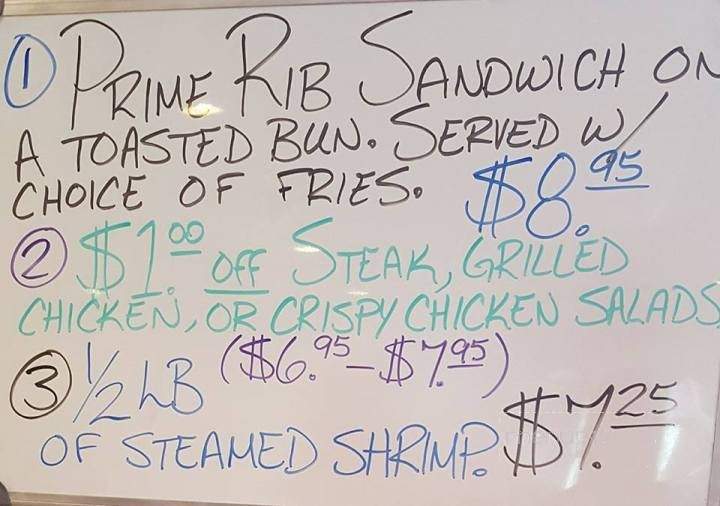 ① PRIME RIB SANDWICH ON
A TOASTED BUN. SERVED W/
CHOICE OF FRIES. $8.95
② $1.00 OFF STEAK, GRILLED
CHICKEN, OR CRISPY CHICKEN SALADS
($6.95-$7.95)
③ 1/2 LB
OF STEAMED SHRIMP. $7.25